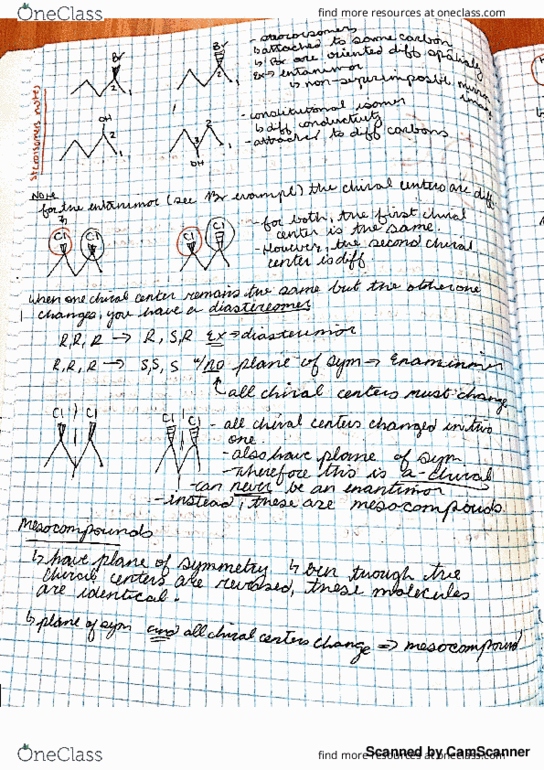 OneClass
find more resources at oneclass.com
stereoisomers notes
Br
Br
- stereoisomers
↳ attached to same carbon
↳ Br are oriented diff spatially
Ex → entanimor
↳ non-superimposible mirror image
OH
OH
- constitutional isomer
↳ diff conductivity
- attached to diff carbons
NOTE
for the entanimor (see Br example) the chiral centers are diff
Cl Cl
Cl Cl
- for both, the first chiral
center is the same.
- However, the second chiral
center is diff
When one chiral center remains the same but the other one
changes, you have a diastereomer
R,R,R → R,S,R Ex → diasteremor
R,R,R → S,S,S w/no plane of sym → Enanimier
all chiral centers must change
Cl Cl
Cl Cl
- all chiral centers changed in two
one
- also have plane of sym
- therefore this is a-chiral
- can never be an enantimor
- instead, these are mesocompounds.
Mesocompounds
↳ have plane of symmetry ↳ even through the
chiral centers are reversed, these molecules
are identical.
↳ plane of sym and all chiral centers change ⇒ mesocompound
Scanned by CamScanner
OneClass
find more resources at oneclass.com